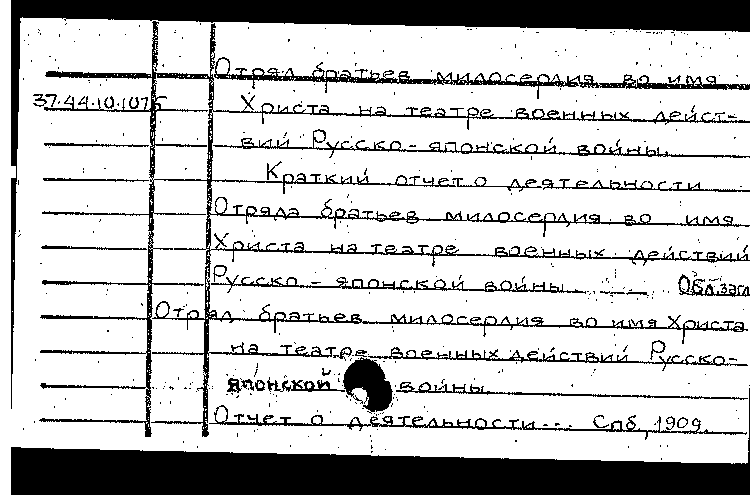 Отряд братьев милосердия во имя
37.44.10.1075 Христа на театре военных дейст-
вий Русско-японской войны.
Краткий отчет о деятельности
Отряда братьев милосердия во имя
Христа на театре военных действий
Русско-японской войны. ... Обл.загл
Отряд братьев милосердия во имя Христа
на театре военных действий Русско-
японской войны.
Отчет о деятельности... Спб, 1909.